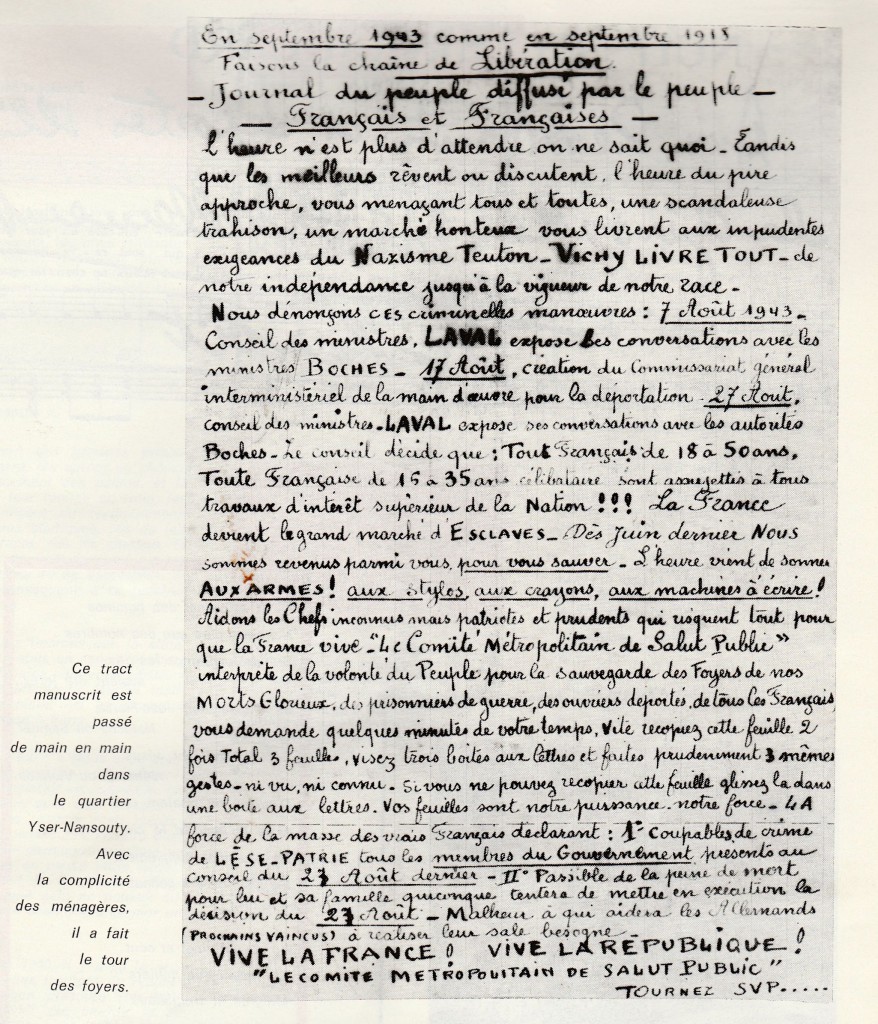 En septembre 1943 comme en septembre 1918
Faisons la chaîne de Libération.
— Journal du peuple diffusé par le peuple —
— Français et Françaises —
L'heure n'est plus d'attendre on ne sait quoi - Tandis
que les meilleurs rêvent ou discutent, l'heure du pire
approche, vous menaçant tous et toutes, une scandaleuse
trahison, un marché honteux vous livrent aux inpudentes
exigeances du Nazisme Teuton - VICHY LIVRE TOUT - de
notre indépendance jusqu'à la vigueur de notre race -
Nous dénonçons ces criminelles manœuvres : 7 Août 1943 -
Conseil des ministres, LAVAL expose ses conversations avec les
ministres BOCHES - 17 Août, création du Commissariat général
interministériel de la main d'œuvre pour la déportation - 27 Aout,
conseil des ministres - LAVAL expose ses conversations avec les autorités
Boches - Le conseil décide que : Tout Français de 18 à 50 ans,
Toute Française de 15 à 35 ans célibataire sont assujettis à tous
travaux d'intérêt supérieur de la Nation !!! La France
devient le grand marché d'ESCLAVES - Dès Juin dernier NOUS
sommes revenus parmi vous, pour vous sauver - L'heure vient de sonner
AUX ARMES ! aux stylos, aux crayons, aux machines à écrire !
Aidons les Chefs inconnus mais patriotes et prudents qui risquent tout pour
que la France vive - "Le Comité Métropolitain de Salut Public"
interprète de la volonté du Peuple pour la sauvegarde des Foyers de nos
MORTS GLORIEUX, des prisonniers de guerre, des ouvriers déportés, de tous les Français,
vous demande quelques minutes de votre temps, Vite recopiez cette feuille 2
fois Total 3 feuilles, visez trois boîtes aux lettres et faites prudemment 3 mêmes
gestes - ni vu, ni connu - Si vous ne pouvez recopier cette feuille glissez la dans
une boîte aux lettres. Vos feuilles sont notre puissance, notre force - LA
force de la masse des vrais Français déclarant : 1° Coupables de crime
de LÈSE-PATRIE tous les membres du Gouvernement présents au
conseil du 27 Août dernier - II° Passible de la peine de mort
pour lui et sa famille quiconque tentera de mettre en exécution la
décision du 27 Août - Malheur à qui aidera les Allemands
(PROCHAINS VAINCUS) à réaliser leur sale besogne -
VIVE LA FRANCE ! VIVE LA RÉPUBLIQUE !
"LE COMITÉ METROPOLITAIN DE SALUT PUBLIC"
TOURNEZ SVP.....
Ce tract
manuscrit est
passé
de main en main
dans
le quartier
Yser-Nansouty.
Avec
la complicité
des ménagères,
il a fait
le tour
des foyers.